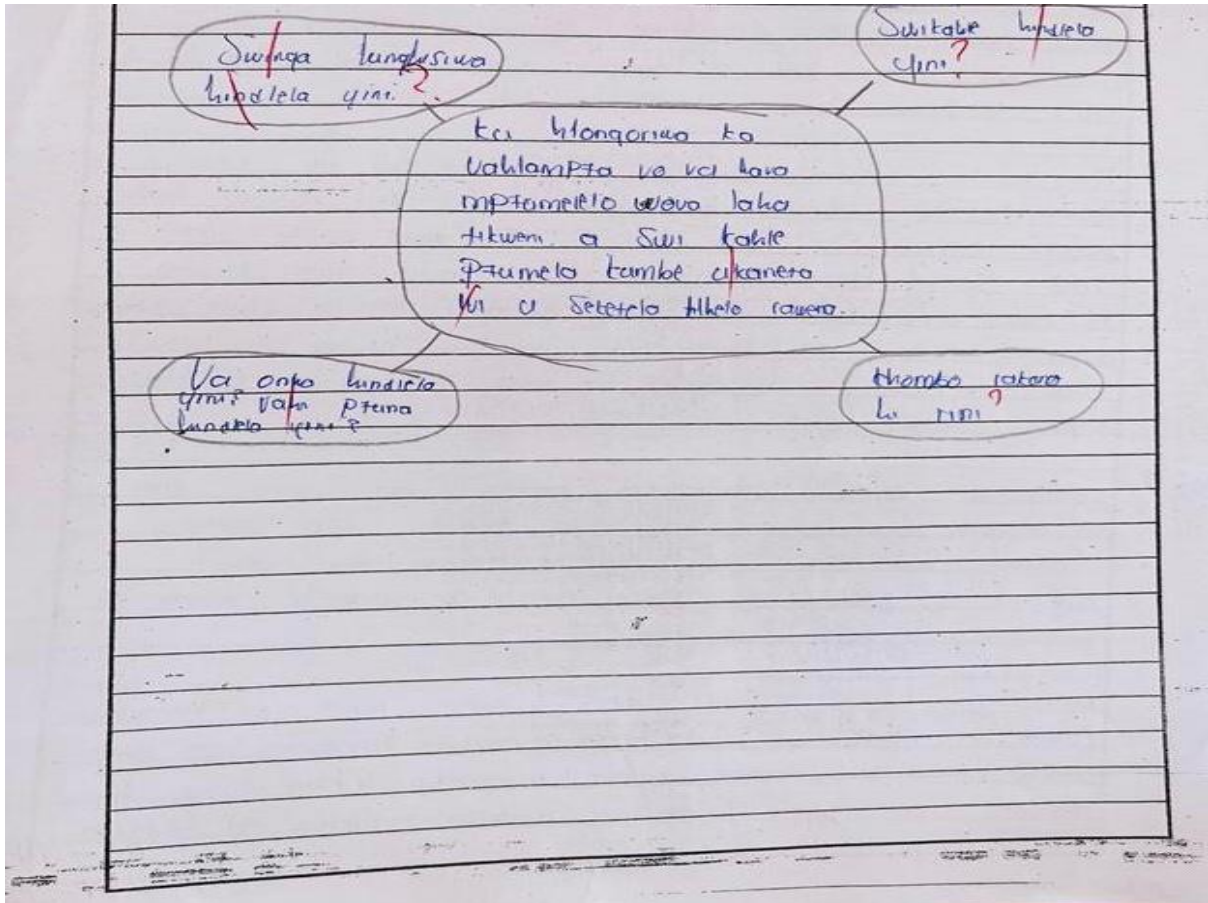 Swinga lunghisiwa
hindlela yini?
Swikahle hindlela
yini?
ka hlongoriwo ka
vahlampfa vo va hava
mpfumelelo wovo laha
tikweni a swi kahle
Pfumela kambe
u seketela tlhelo rawena.
Va onha hindlela
yini? Vahi pfuna
hindlela yini?
thomba ratava
hi rini?